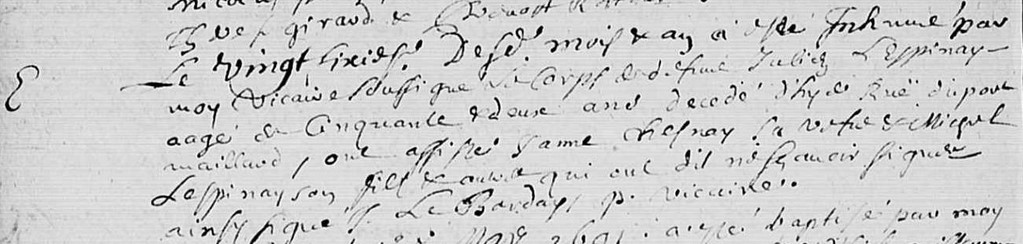 Girard &
Le vingt sixies.e Desd. mois & an a esté Inhumé par
moy vicaire soussigné Le Corps de deffunt Julien Lespinay
aagé de Cinquante & deux ans decedé d'hyer Ruë du pont
maillard, ont assisté Janne Chesnay sa veufve & Michel
Lespinay son fils & autres qui ont dit ne sçavoir signer
ainsy signé J. Le Bardays p. vicaire.
a esté baptisé par moy